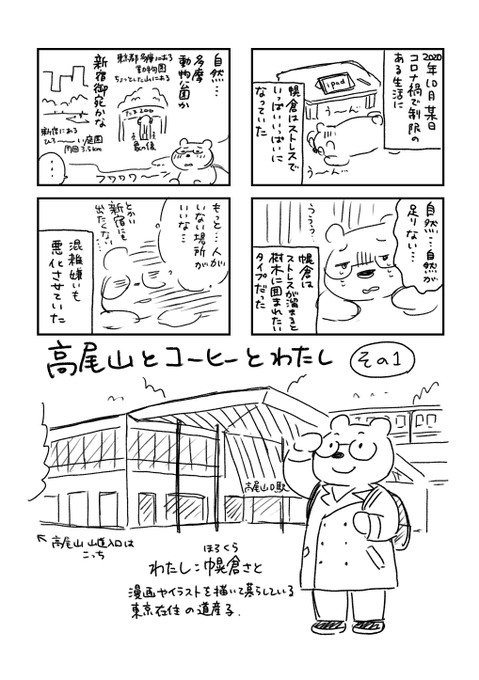 2020
年10月某日
コロナ禍で制限の
ある生活に
ipad
う〜ん゛
う〜ん゛
幌倉はストレスで
いっぱいいっぱいに
なっていた
自然…
多摩
動物公園か
東京都多摩にある
動物園
ちょっとした山にある
たまzoo
象の像
新宿御苑かな
新宿にある
ひろ〜い庭園
円周3.5km
フワフワ〜
…
自然…自然が
足りない…
ううう
幌倉は
ストレスが溜まると
樹木に囲まれたい
タイプだった
もっと…人が
いない場所が
いいな…
とかい
新宿にも
出たくない…
混雑嫌いも
悪化させていた
高尾山とコーヒーとわたし
その1
高尾山口駅
高尾山 山道入口は
こっち
ほろくら
わたし:幌倉さと
漫画やイラストを描いて暮らしている
東京在住の道産子.